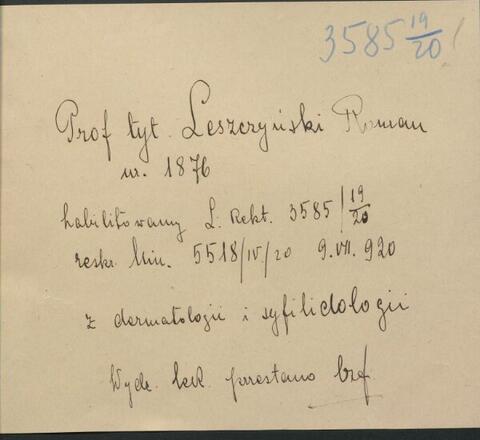 3585 19/20
Prof tyt. Leszczyński Roman
ur. 1876
habilitowany L. Rekt. 3585/19/20
reskr. Min. 5518/IV/20 9.VII.920
z dermatologii i syfilidologii
Wydz. lek.